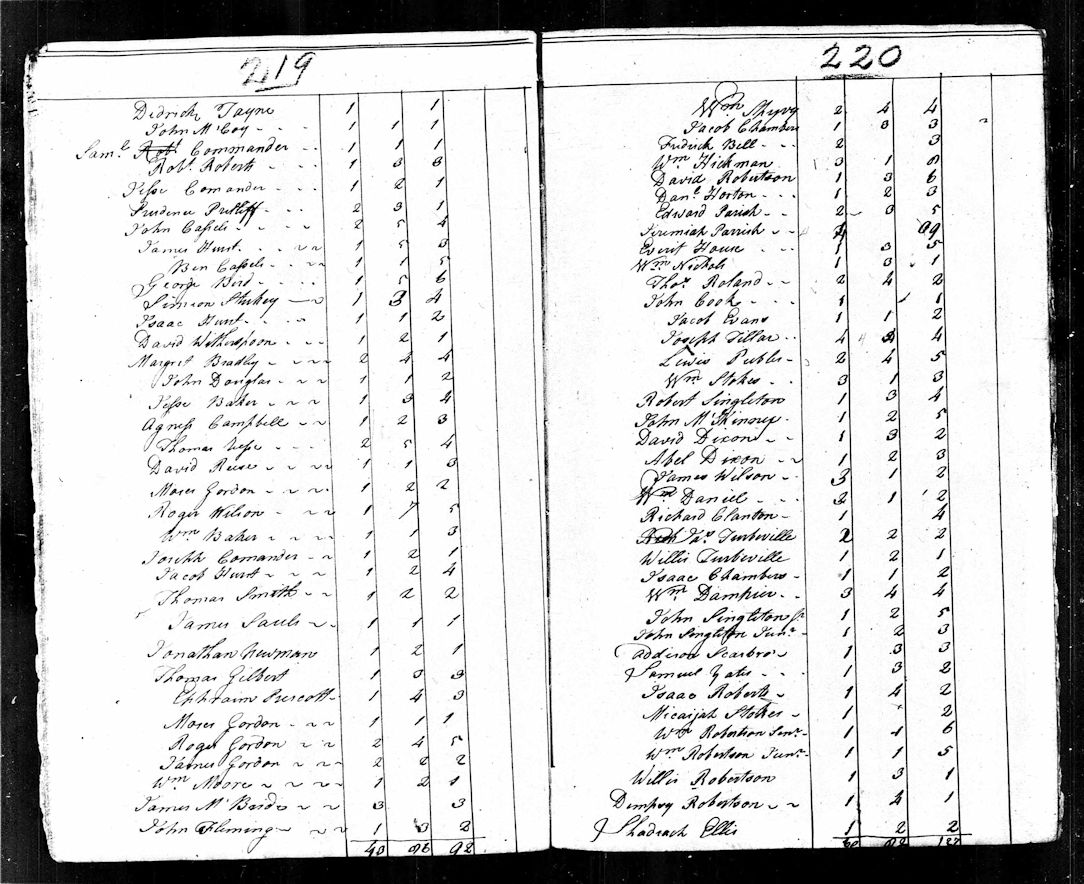 219
Didrick Tayne 1 1
John McCoy 1 1 1
Saml. Commander 1 1 1
Robt. Roberts 1 3 3
Jesse Comander 1 2 1
Prudence 2 3 1
John Cassels 2 5 4
James Hurst 1 5 3
Ben Cassels 1 1 5
George Bird 1 5 6
Simeon Stukey 1 3 4
Isaac Hunt 1 1 2
David Witherspoon 1 2 1
Margret Bradley 2 4 4
John Douglas 1 1 2
Jesse Baker 1 3 4
Agness Campbell 1 2 3
Thomas 2 5 4
David Reese 1 1 3
Moses Gordon 1 2 2
Roger Wilson 1 7 5
Wm Baker 1 1 3
Joseph Comander 1 2 1
Jacob Hurst 1 2 4
Thomas Smith 1 2 2
James Sauls 1 1 1
Jonathan Newman 1 2 1
Thomas Gilbert 1 3 3
Ephraim Prescott 1 4 3
Moses Gordon 1 1 1
Roger Gordon 2 4 5
James Gordon 2 2 2
Wm Moore 1 2 1
James McBride 3 3
John Fleming 1 3 2
92
220
Wm 2 4 4
Jacob Chambers 1 3 3
Fredrick Bell 2 3
Wm Hickman 3 1 8
David Robertson 1 3 6
Danl. Horton 1 2 3
Edward Parish 2 3 5
Jeremiah Parrish
Everit House 1 3 5
Wm Nichols 1 3 1
Thos. Roland 2 4 2
John Cook 1 1
Jacob Evans 1 1 2
Joseph Tillar 4 4
Lewis Peebles 2 4 5
Wm Stokes 3 1 3
Robert Singleton 1 3 4
John 1 2 5
David Dixon 1 3 2
Abel Dixon 1 2 3
James Wilson 3 1 2
Wm Daniel 2 1 2
Richard Clanton 1 4
Jas. Turbeville 2 2 2
Willis Turbeville 1 2 1
Isaac Chambers 1 1 2
Wm Dampier 3 4 4
John Singleton Sr 1 2 5
John Singleton Junr 1 2 3
Addison Scarbro 1 3 3
Samuel Yates 1 3 2
Isaac Roberts 1 4 2
Micaijah Stokes 1 2
Wm Robertson Senr 1 1 6
Wm Robertson Junr 1 1 5
Willis Robertson 1 3 1
Dempsy Robertson 1 4 1
Shadrach Ellis 1 2 2